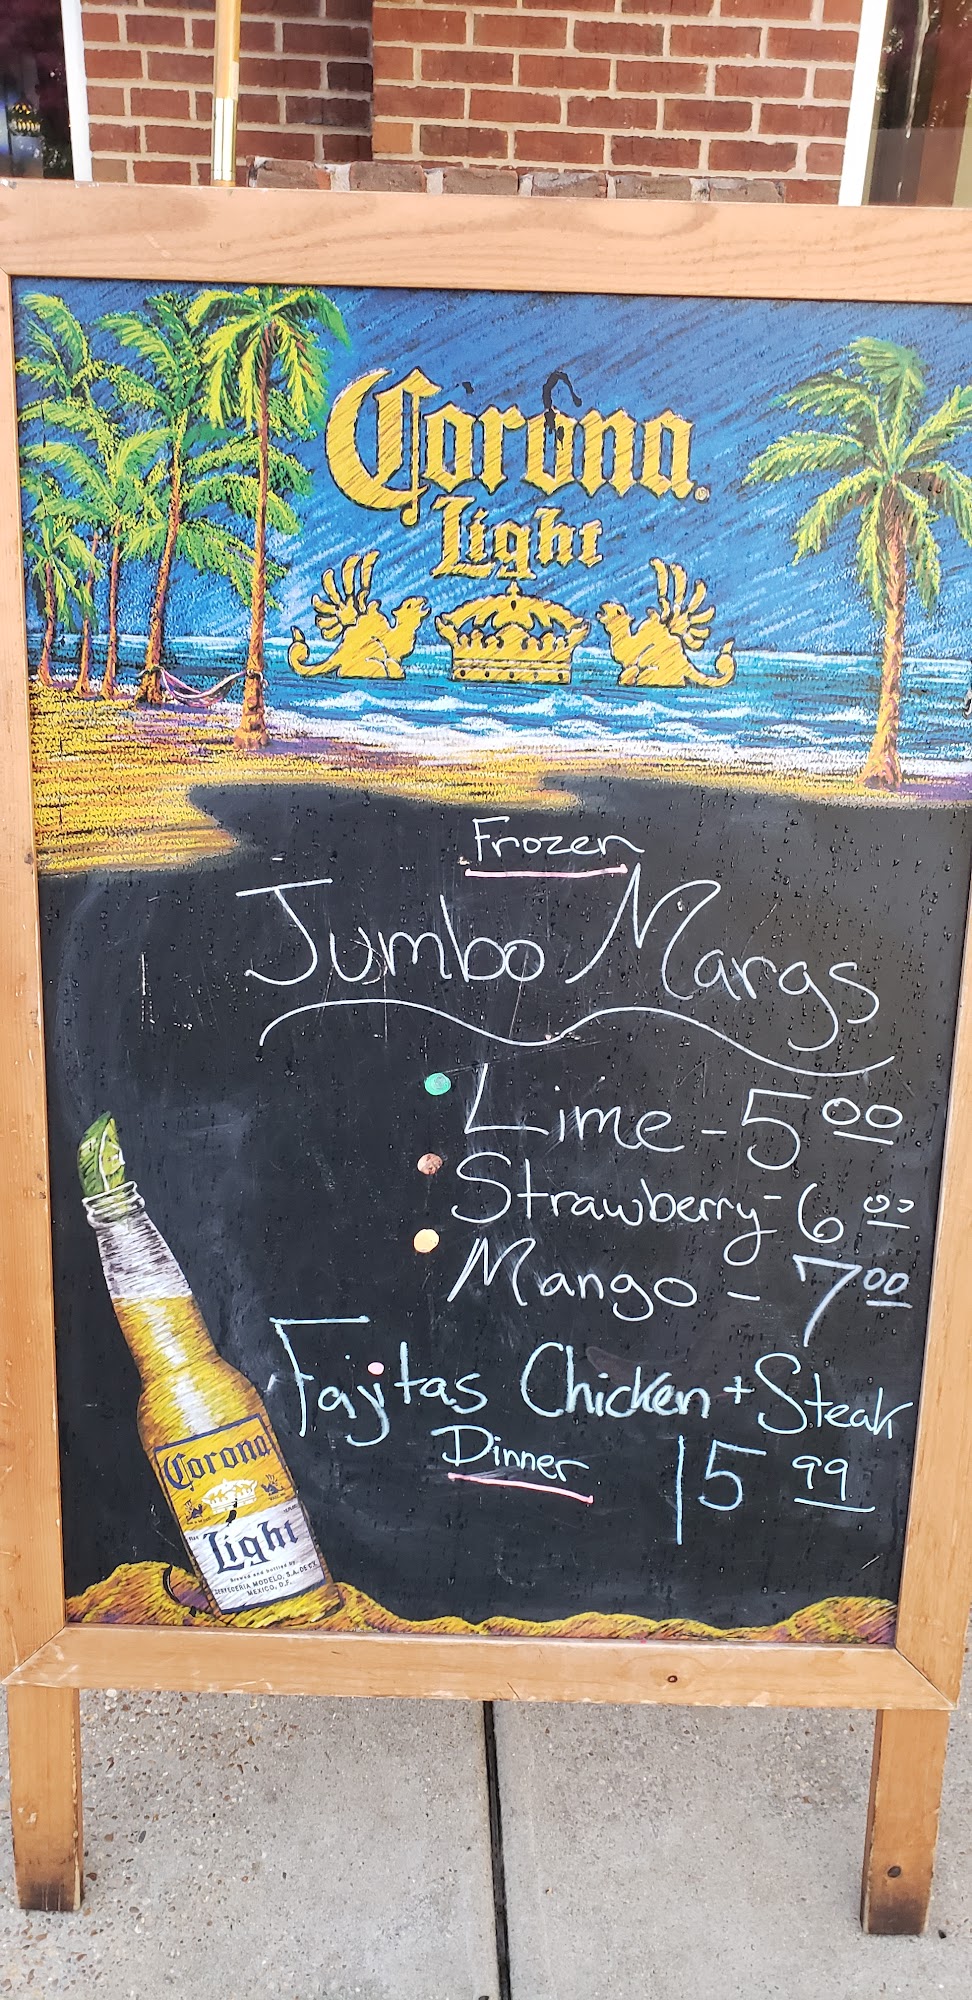 Corona
Light
Frozen
Jumbo Margs
Lime - 5 00
Strawberry - 6 00
Mango - 7 00
Fajitas Chicken + Steak
Dinner 15 99
Corona
Light
Brewed and bottled by
CERVECERIA MODELO, S.A. DE C.V.
MEXICO, D.F.